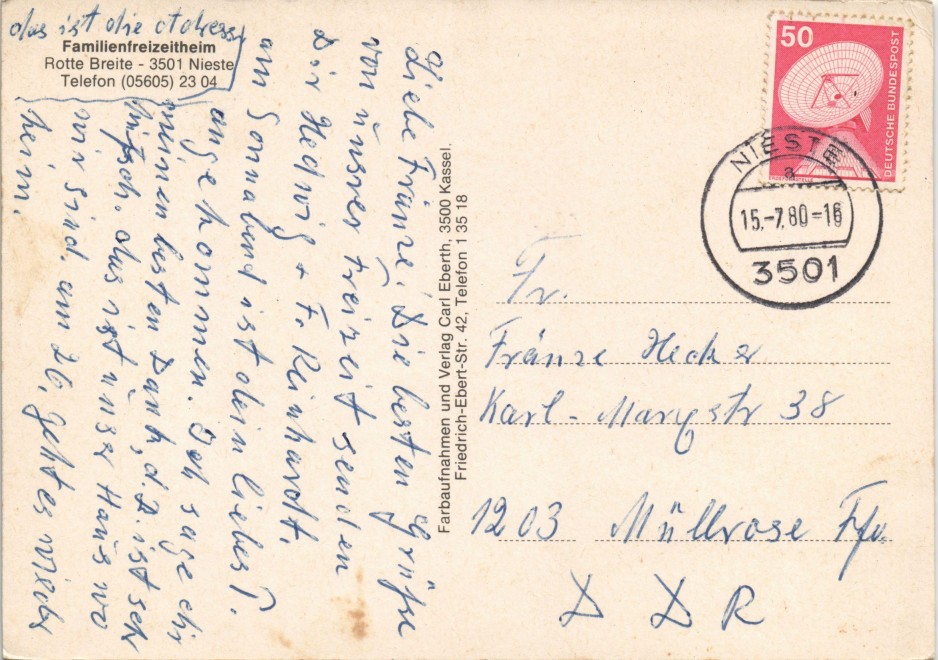 das ist die Adresse
Familienfreizeitheim
Rotte Breite - 3501 Nieste
Telefon (05605) 23 04
Liebe Fränze! Die besten Grüße
von unsrer Freizeit senden
Dir Hedwig + F. Reinhardt.
am Sonnabend ist dein liebes P.
angekommen. Ich sage dir
meinen besten Dank, d. P. ist sehr
hübsch. das ist unser Haus wo
wir sind. am 26. geht es wieder
heim.
Farbaufnahmen und Verlag Carl Eberth, 3500 Kassel.
Friedrich-Ebert-Str. 42, Telefon 1 35 18
50
DEUTSCHE BUNDESPOST
NIESTE
a
15.-7.80-16
3501
Fr.
Fränze Hecker
Karl-Marxstr 38
1203 Müllrose Ffu.
DDR